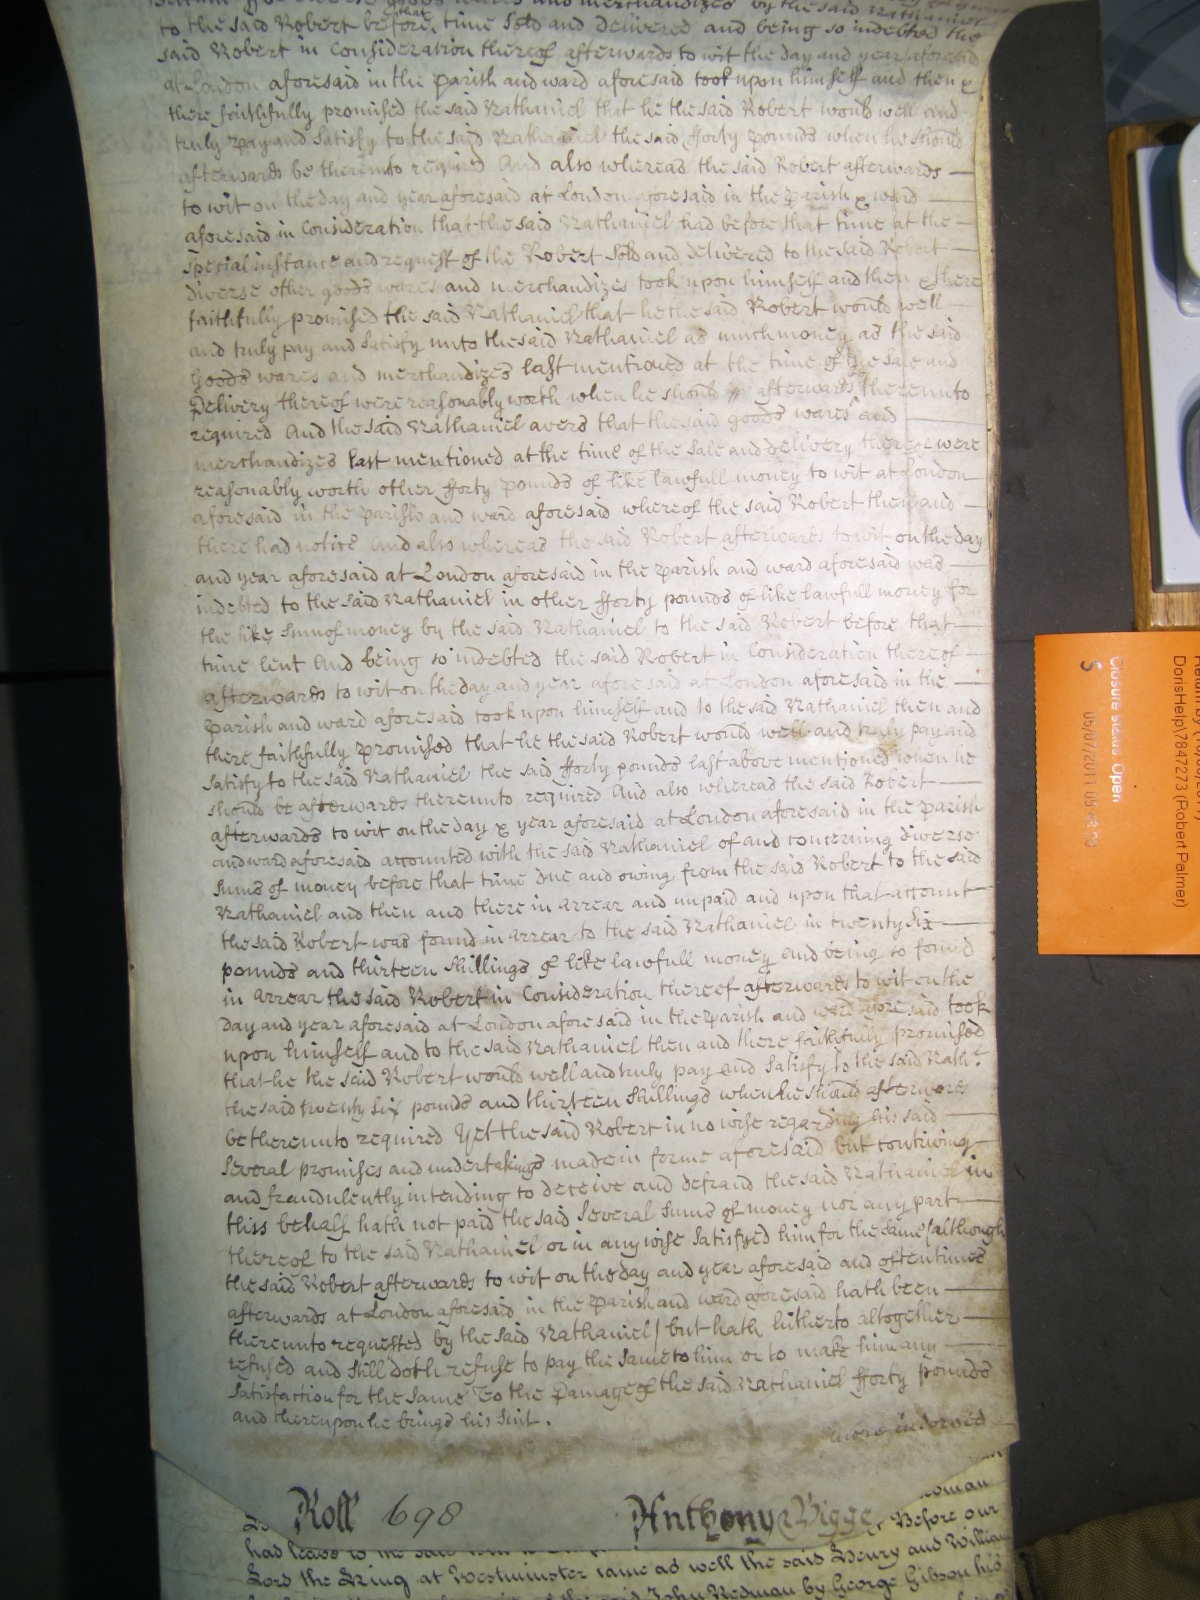 goods wares and merchandizes by the said Nathaniel
to the said Robert before that time Sold and delivered and being so indebted the
said Robert in Consideration thereof afterwards to wit the day and year aforesaid
at London aforesaid in the parish and ward aforesaid took upon himself and then &
there faithfully promised the said Nathaniel that he the said Robert would well and
truly pay and Satisfy to the said Nathaniel the said fforty pounds when he should
afterwards be thereunto required And also whereas the said Robert afterwards
to wit on the day and year aforesaid at London aforesaid in the parish & ward
aforesaid in Consideration that the said Nathaniel had before that time at the
special instance and request of the Robert Sold and delivered to the said Robert
diverse other goods wares and merchandizes took upon himself and then & there
faithfully promised the said Nathaniel that he the said Robert would well
and truly pay and Satisfy unto the said Nathaniel as much money as the said
Goods wares and merchandizes last mentioned at the time of the Sale and
Delivery thereof were reasonably worth when he should afterwards thereunto
required And the said Nathaniel avers that the said goods wares and
merchandizes last mentioned at the time of the Sale and delivery thereof were
reasonably worth other fforty pounds of like lawfull money to wit at London
aforesaid in the parish and ward aforesaid whereof the said Robert then and
there had notice And also whereas the said Robert afterwards to wit on the day
and year aforesaid at London aforesaid in the parish and ward aforesaid was
indebted to the said Nathaniel in other fforty pounds of like lawfull money for
the like Sum of money by the said Nathaniel to the said Robert before that
time lent And being so indebted the said Robert in Consideration thereof
afterwards to wit on the day and year aforesaid at London aforesaid in the
parish and ward aforesaid took upon himself and to the said Nathaniel then and
there faithfully promised that he the said Robert would well and truly pay and
Satisfy to the said Nathaniel the said fforty pounds last above mentioned when he
should be afterwards thereunto required And also whereas the said Robert
afterwards to wit on the day & year aforesaid at London aforesaid in the parish
and ward aforesaid accounted with the said Nathaniel of and concerning diverse
Sums of money before that time due and owing from the said Robert to the said
Nathaniel and then and there in arrear and unpaid and upon that account
the said Robert was found in arrear to the said Nathaniel in twenty Six
pounds and thirteen Shillings of like lawfull money and being so found
in arrear the said Robert in Consideration thereof afterwards to wit on the
day and year aforesaid at London aforesaid in the parish and ward aforesaid took
upon himself and to the said Nathaniel then and there faithfully promised
that he the said Robert would well and truly pay and Satisfy to the said Nath:l
the said twenty Six pounds and thirteen Shillings when he should afterwards
be thereunto required Yet the said Robert in no wise regarding his said
Several promises and undertakings made in forme aforesaid but contriving
and fraudulently intending to deceive and defraud the said Nathaniel in
this behalf hath not paid the said Several Sums of money nor any part
thereof to the said Nathaniel or in any wise Satisfyed him for the Same (although
the said Robert afterwards to wit on the day and year aforesaid and oftentimes
afterwards at London aforesaid in the parish and ward aforesaid hath been
thereunto requested by the said Nathaniel) but hath hitherto altogether
refused and still doth refuse to pay the Same to him or to make him any
Satisfaction for the Same To the Damage of the said Nathaniel fforty pounds
and thereupon he brings his Suit.
more indorsed
Roll 698 Anthony Bigge.
Before our
had leave to
Lord the King at Westminster came as well the said Henry and William
the said John Redman by George Gibson his
Closure status Open
S 05/07/2011 09:
DorisHelp\7847273 (Robert Palmer)